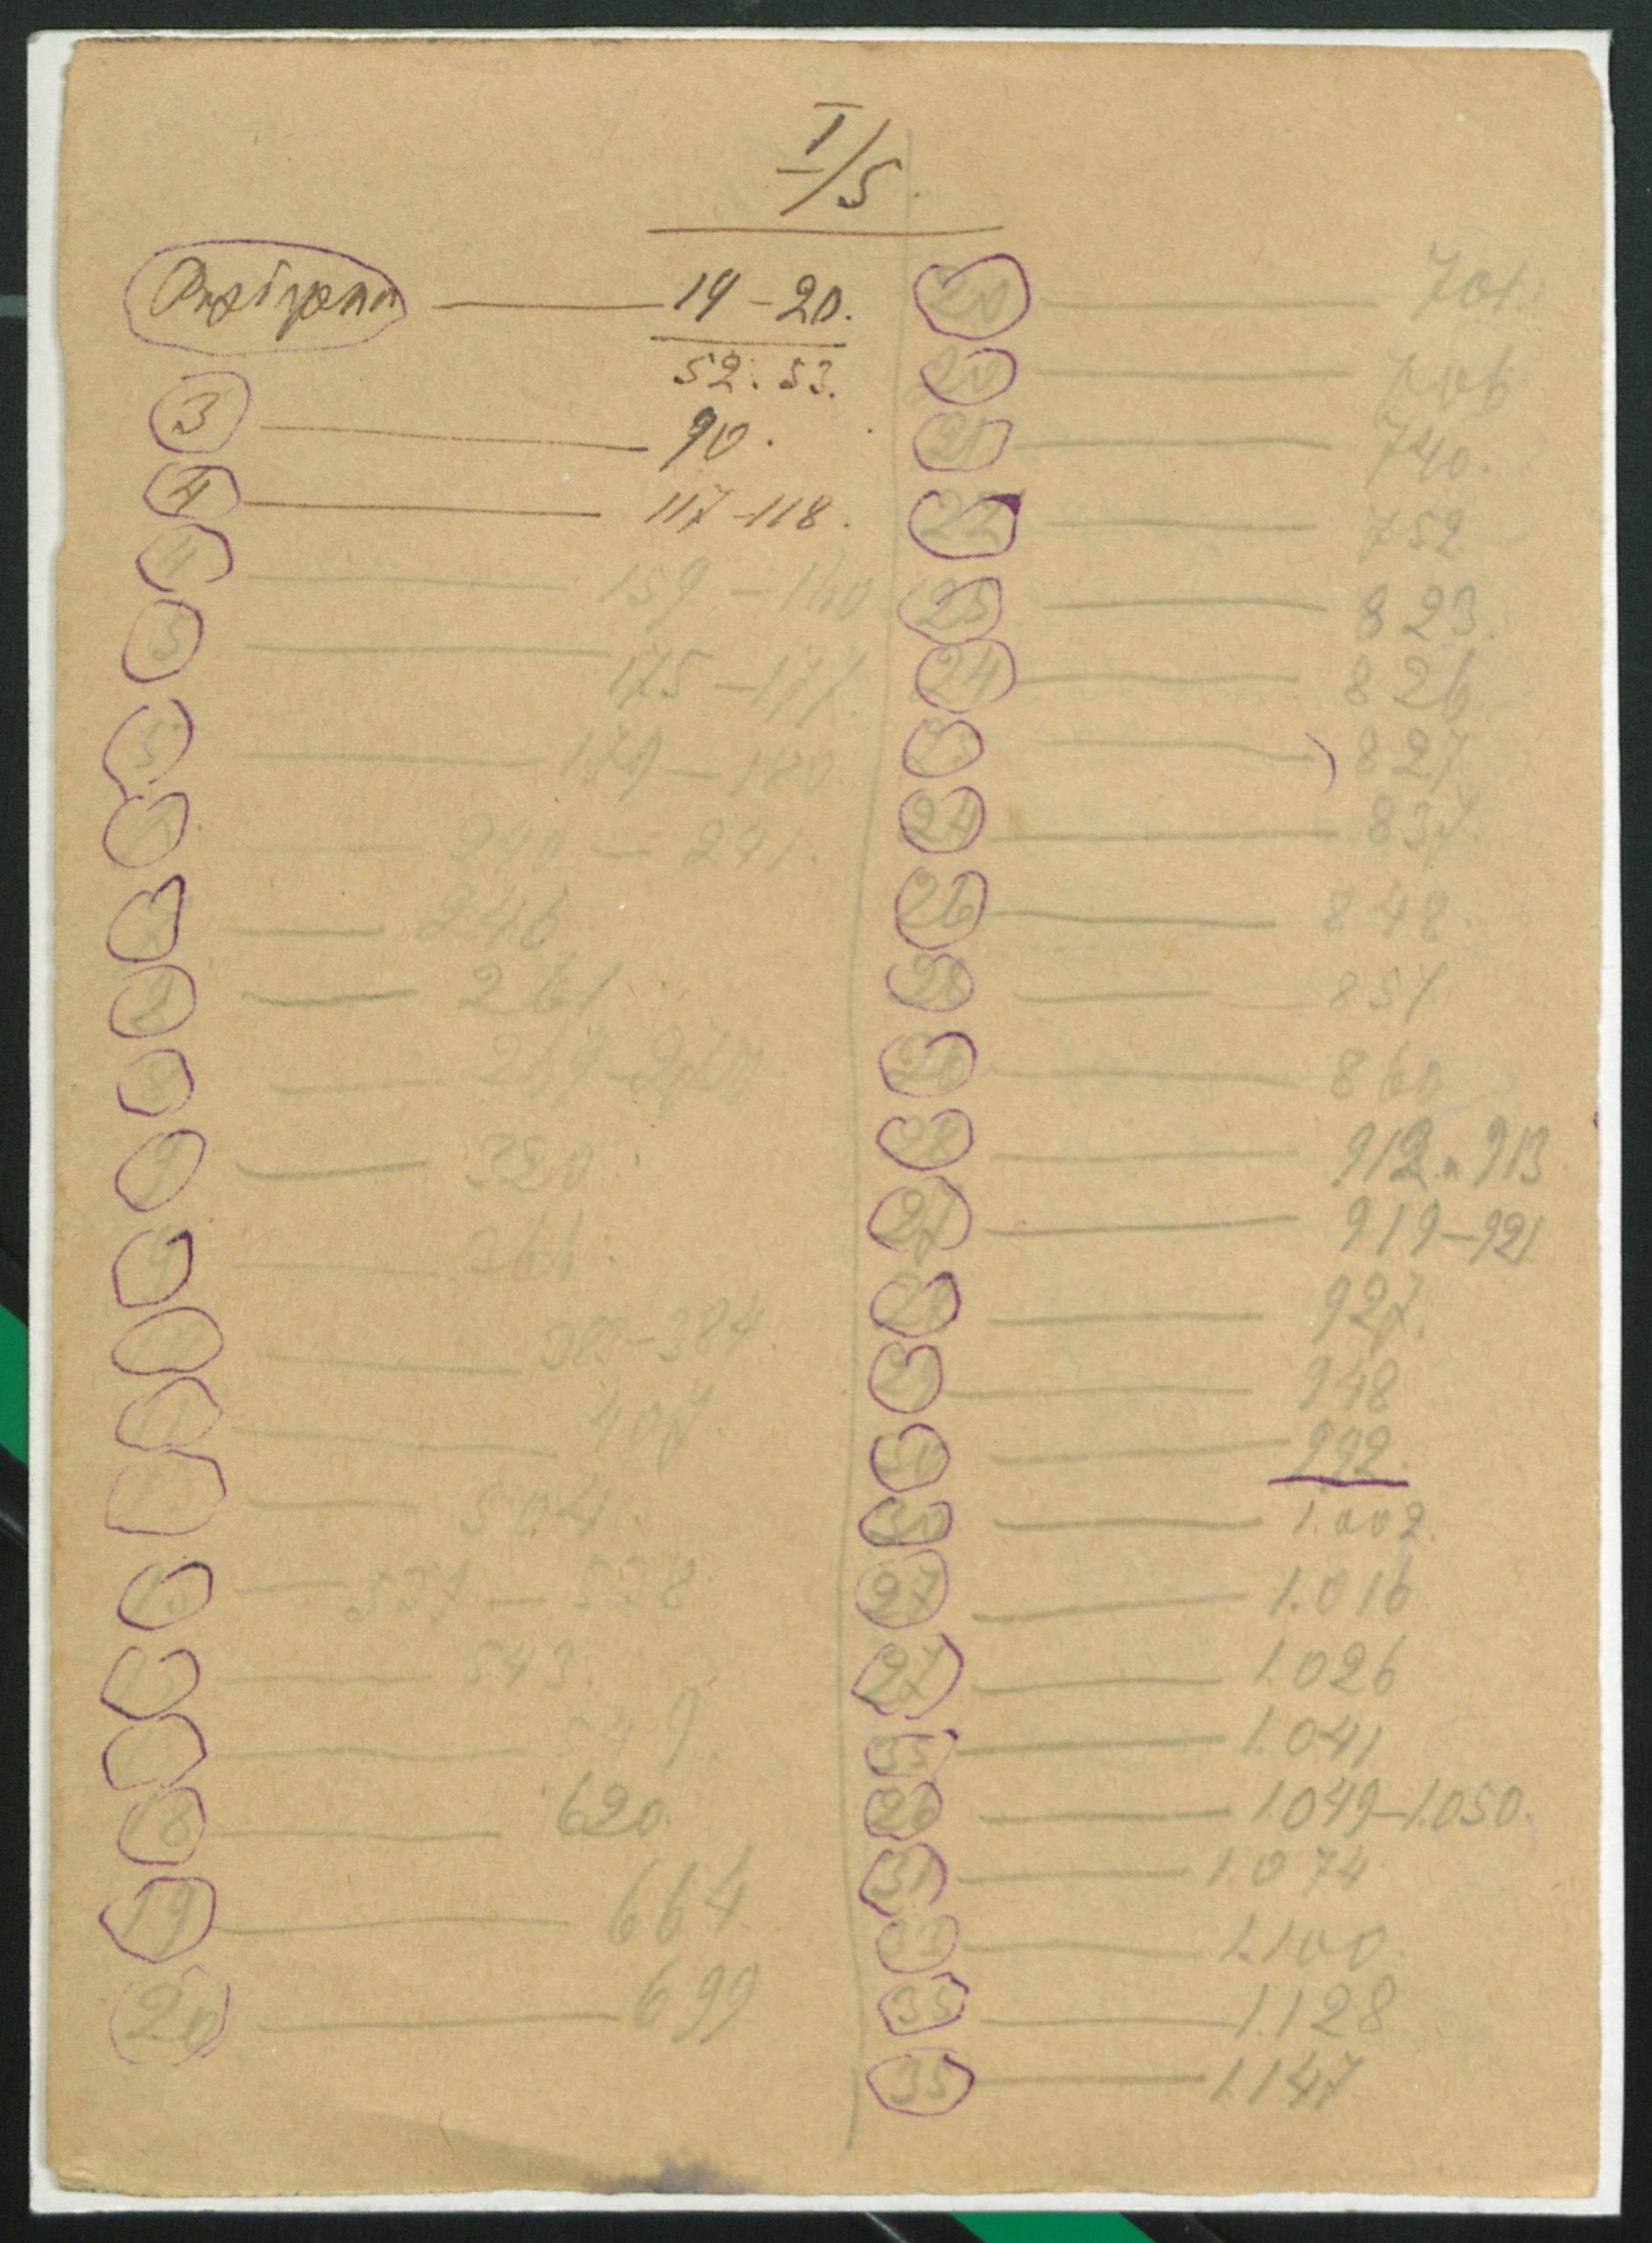 I/5.
19–20.
52. 53.
3 — 90.
4 — 117–118.
159–160
5 — 175–177.
5 — 179–180.
240 — 241.
246
261
269–270
9 — 320.
361.
383–384.
407.
504.
537 — 538.
543.
549.
18 — 620.
19 — 664
20 — 699
20 — 701.
20 — 706
21 — 740.
22 — 752
25 — 823.
24 — 826
827
24 — 837.
26 — 848.
28 — 857
28 — 860
28 — 912 и 913
27 — 919–921
28 — 927.
948
30 — 992.
30 — 1.002.
27 — 1.016
27 — 1.026
1.041
26 — 1.049–1.050.
31 — 1.074
1.100.
35 — 1.128
35 — 1.147